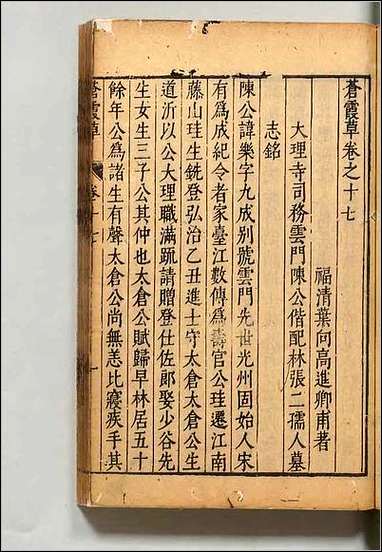 蒼霞草卷之十七
福清葉向高進卿甫著
大理寺司務雲門陳公偕配林張二孺人墓
志銘
陳公諱樂字九成别號雲門先世光州固始人宋
有為成紀令者家臺江數傳為壽官公珪遷江南
藤山珪生銑登弘治乙丑進士守太倉太倉公生
道沂以公大理職滿疏請贈登仕佐郎娶少谷先
生女生三子公其仲也太倉公賦歸早林居五十
餘年公為諸生有聲太倉公尚無恙比寢疾手其
蒼霞草
卷十七
一